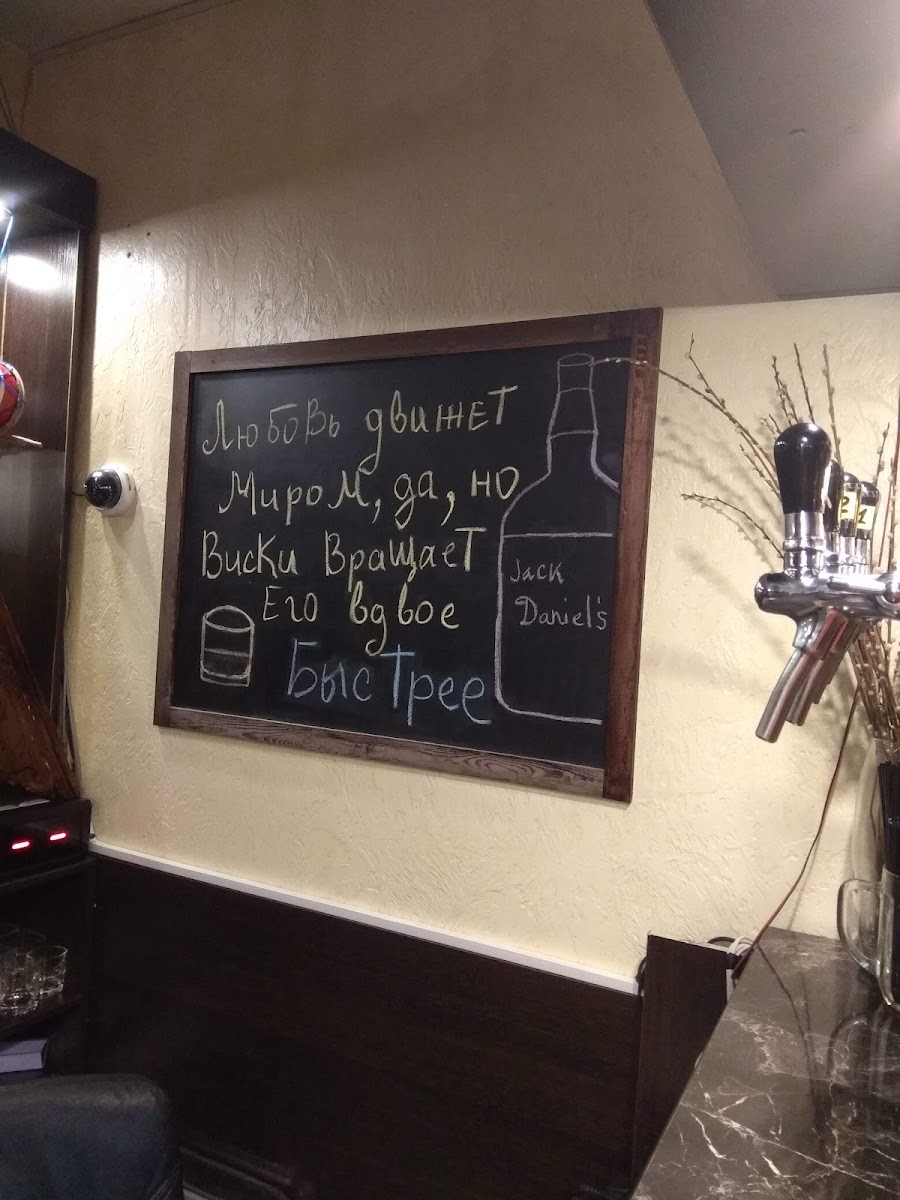 Любовь движет
Миром, да, но
Виски вращает
Его вдвое
Быстрее
Jack
Daniel's
2
1